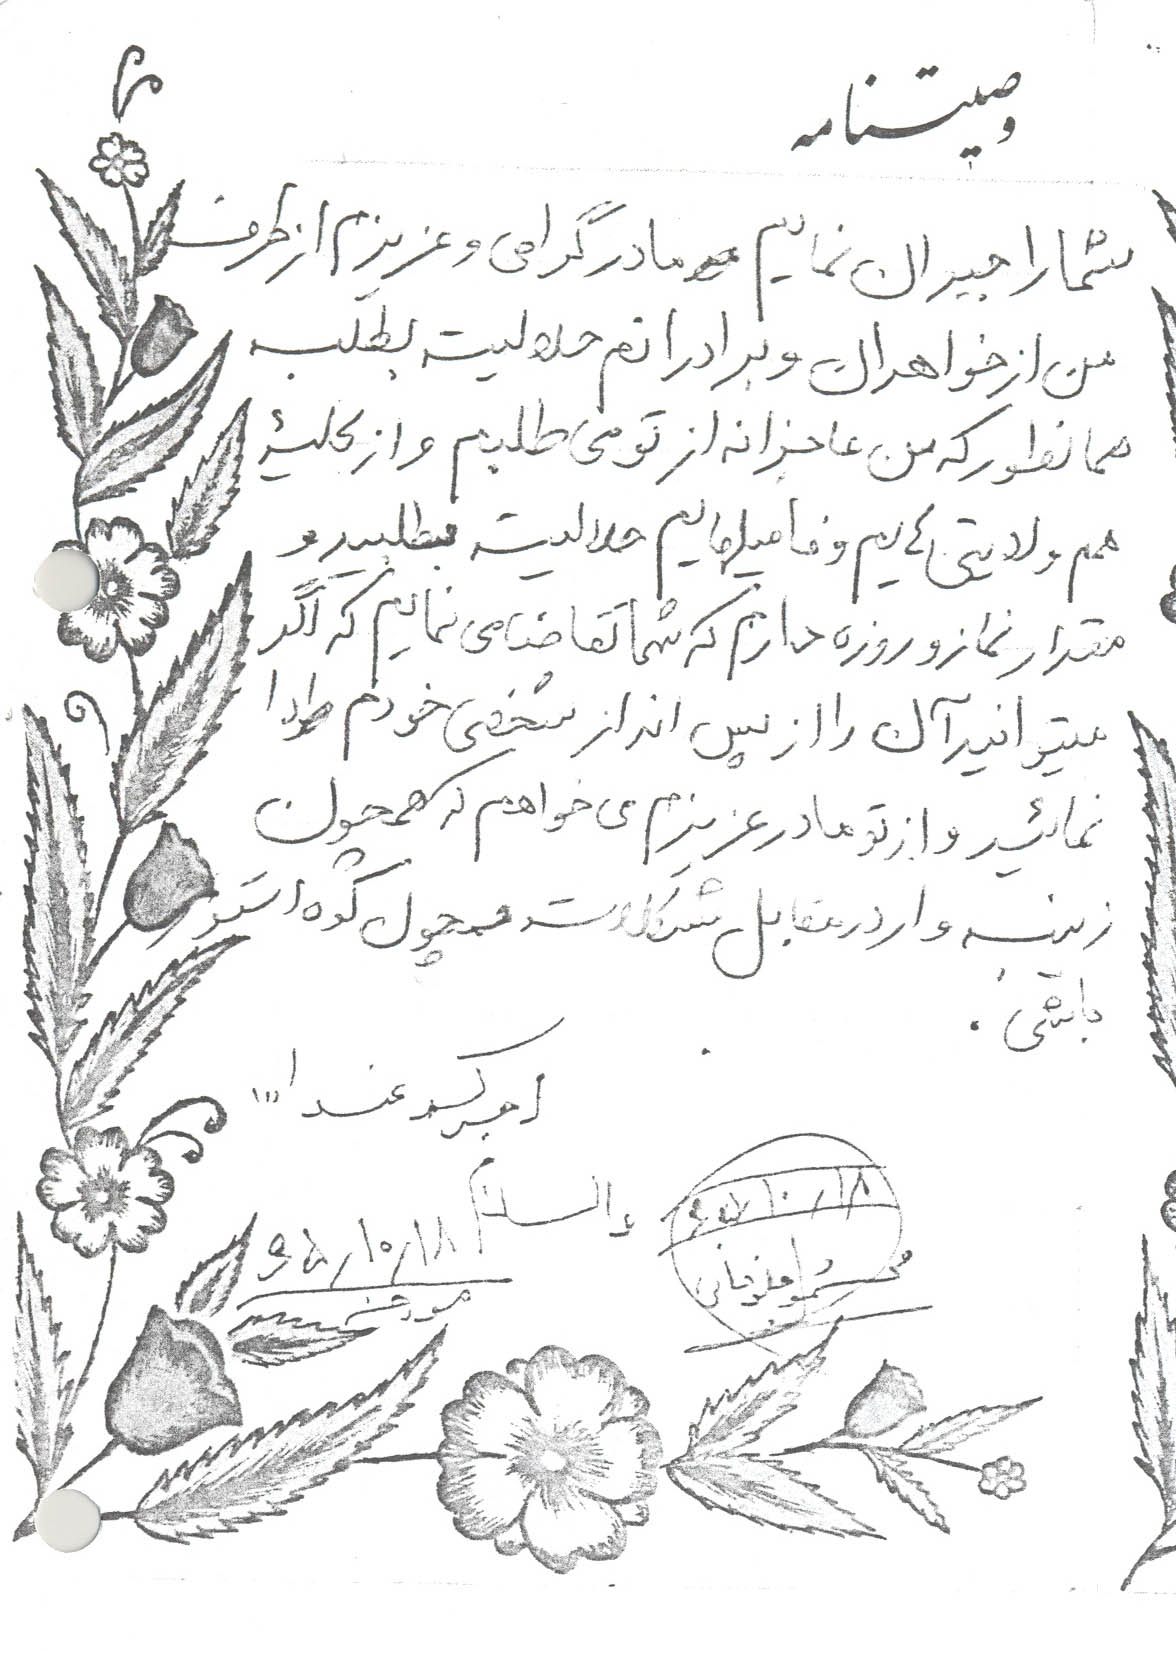 وصیتنامه
شما را جبران نمایم مادر گرامی و عزیزم از طرف
من از خواهران و برادرانم حلالیت بطلب
همانطور که من عاجزانه از تو می طلبم و از کلیه
هم ولایتی هایم و فامیلهایم حلالیت بطلبید و
مقدار نماز و روزه دارم که شما تقاضا می نمایم که اگر
میتوانید آن را از پس انداز شخصی خودم ادا
نمائید و از تو مادر عزیزم می خواهم که همچون
زینب وار در مقابل مشکلات همچون کوه استوار
باشی .
اجرکم عندا...
والسلام
۶۵/۱۰/۱۸
۶۵/۱۰/۱۸
مورخه